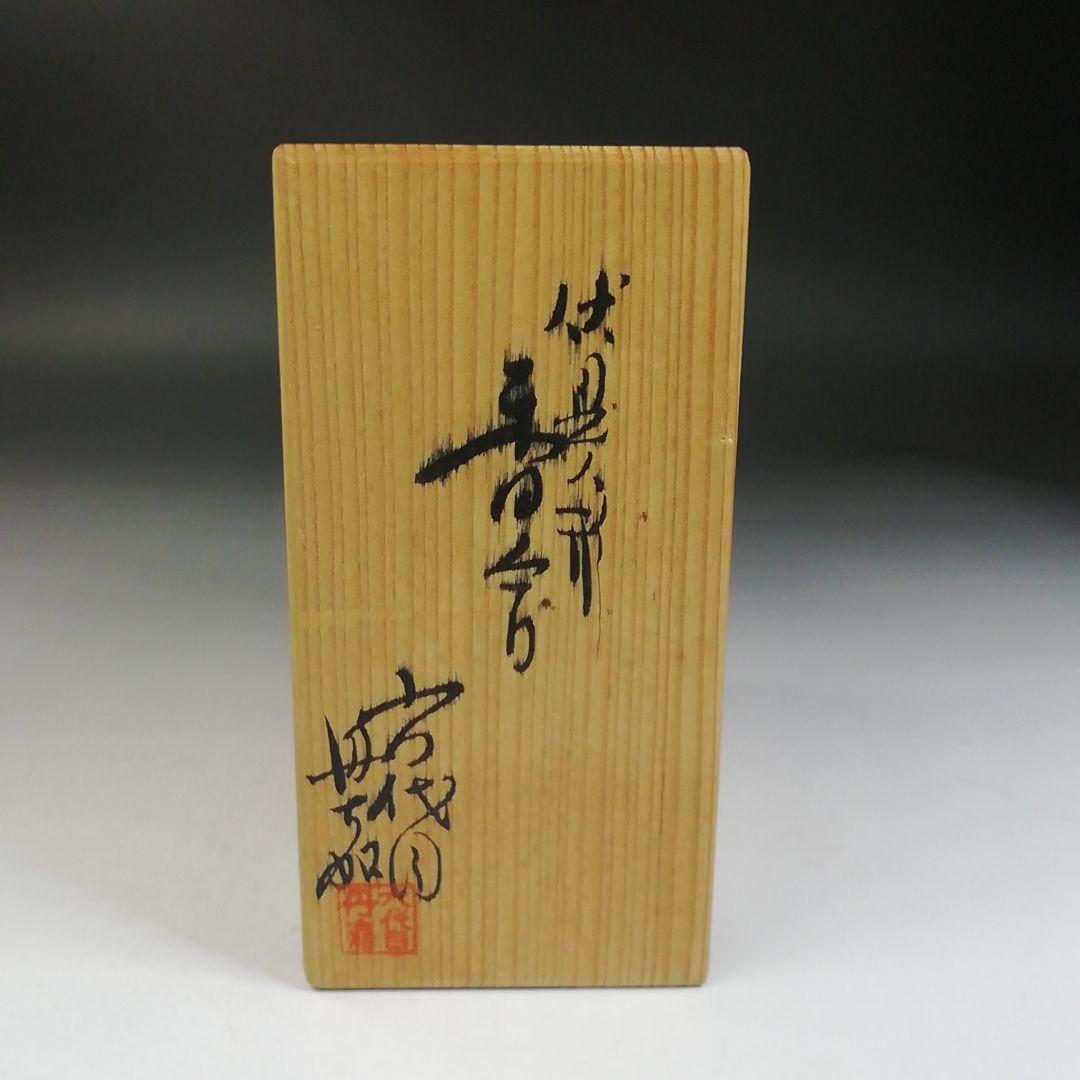 伏見人形
香合
六代目
丹嘉
六代目